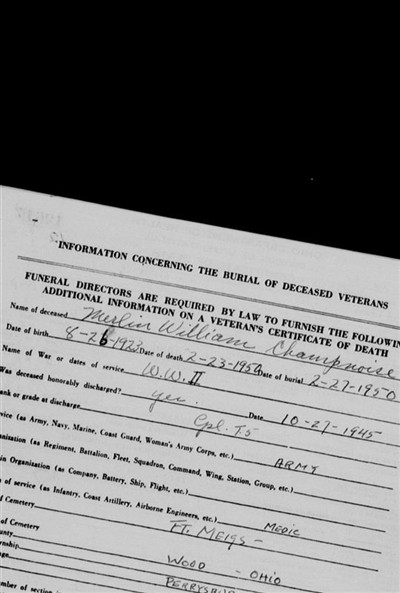 INFORMATION CONCERNING THE BURIAL OF DECEASED VETERANS
FUNERAL DIRECTORS ARE REQUIRED BY LAW TO FURNISH THE FOLLOWIN
ADDITIONAL INFORMATION ON A VETERAN'S CERTIFICATE OF DEATH
Name of deceased Merlin William Champnoise
Date of birth 8-26-1923 Date of death 2-23-1950 Date of burial 2-27-1950
Name of War or dates of service W.W. II
Was deceased honorably discharged? yes. Date 10-27-1945
ank or grade at discharge Cpl. T5
vice (as Army, Navy, Marine, Coast Guard, Woman's Army Corps, etc.) ARMY
anisation (as Regiment, Battalion, Fleet, Squadron, Command, Wing, Station, Group, etc.)
in Organisation (as Company, Battery, Ship, Flight, etc.)
of service (as Infantry, Coast Artillery, Airborne Engineers, etc.) MEDIC
Cemetery FT. MEIGS -
of Cemetery
unty WOOD - OHIO
nship PERRYSBUR
mber of section